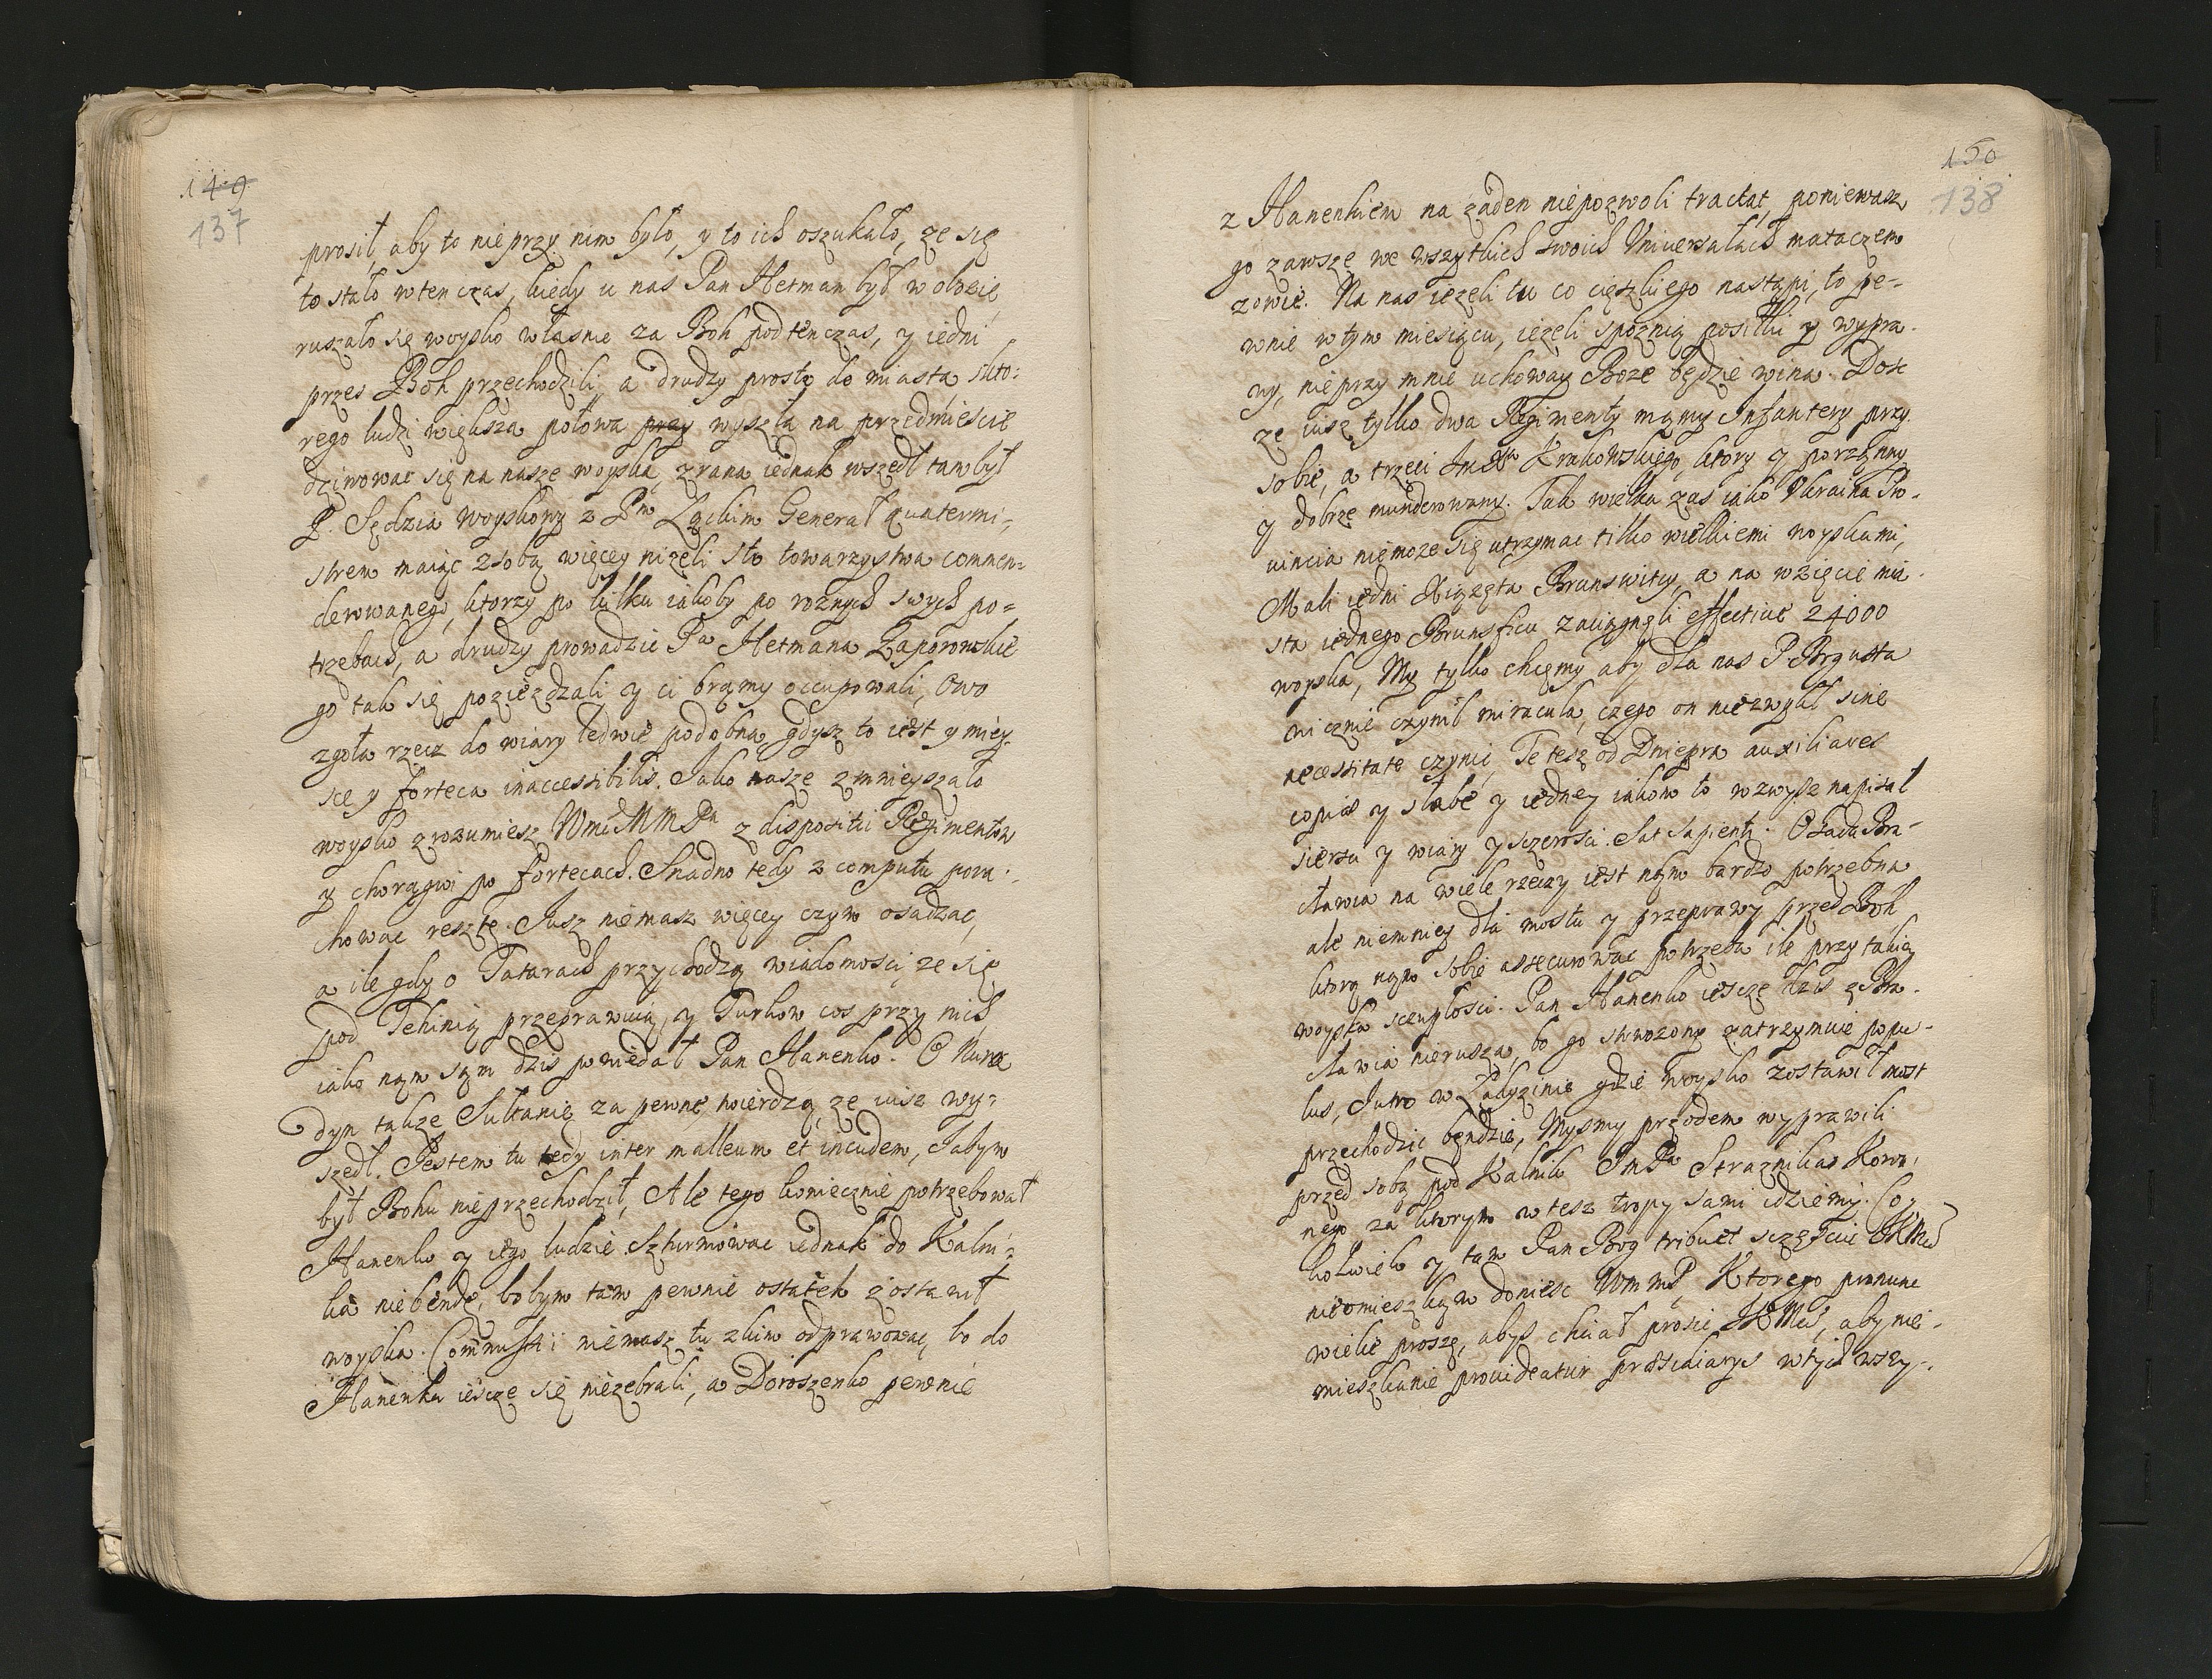 149
137
prosił, aby to nieprzy nim było, y to ich oszukało, ze się
to stało wten czas, kiedy u nas Pan Hetman był w obozie,
ruszało się woysko własnie za Boh pod ten czas, y iedni
przes Boh przechodzili, a drudzy prosto do miasta skto=
rego ludzi większa połowa przy wyszła na przedmiescie
dziwowac się na nasze woyska, zrana iednak wszedł tam był
P. Sędzia Woyskowy z Pm Łąckim Generał quatermi=
strem maiąc zsobą więcey nizeli sto towarzystwa commen=
derowanego, ktorzy po kilku iakoby po roznych swych po=
trzebach, a drudzy prowadzic Pa Hetmana Zaporowskie
go tak się poziezdzali y ci bramy occupowali, Owo
zgoła rzecz do wiary ledwie podobna, gdysz to iest y miey=
sce y forteca inaccessibilis. Jako nasze zmnieyszało
woysko zrozumiesz WmMMPn z dispositii Regimentow
y chorągwi po fortecach. Snadno tedy z computu pora=
chowac resztę. Jusz niemasz więcey czym osadzac,
a ile gdy o Tatarach przychodzą wiadomosci, ze się
pod Tehinią przeprawuią, y Turkow cos przy nich
iako nam sam dzis powiedał Pan Hanenko. O Nura
dyn takze Sułtanie za pewne twierdzą, ze iusz wy=
szedł. Jestem tu tedy inter malleum et incudem, Jabym
był Bohu nieprzechodził, Ale tego koniecznie potrzebował
Hanenko y iego ludzie. Szturmowac iednak do Kalni=
ka niebendę, bobym tam pewnie ostatek zostawił
woyska. Commissii niemasz tu zkim odprawowac, bo do
Hanenka iescze się niezebrali, a Doroszenko pewnie
150
138
z Hanenkiem na zaden niepozwoli tractat, poniewasz
go zawsze we wszytkich swoich Uniwersałach mataczem
zowie. Na nas iezeli tu co cięszkiego nastąpi, to pe=
wnie wtym miesiącu, iezeli spoznią posiłki y wypra=
wy, nieprzy mnie uchoway Boze będzie wina. Dosc
ze iusz tylko dwa Regimenty mamy Infantery przy
sobie, a trzeci ImPa Krakowskiego, ktory y porządny
y dobrze munderowany. Tak wielka zas iako Ukraina Pro=
uincia niemoze się utrzymac tilko wielkiemi woyskami,
Mali iedni Xiązęta Brunswitcy, a na wzięcie mia=
sta iednego Brunsficu zaciągnęli effectiue 24000
woyska, My tylko chcemy aby dla nas P Bog usta
wicznie czynił miracula, czego on niezwykł sine
necessitate czynic, Te tesz od Dniepra auxiliares
copiae y słabe y iedney iakom to wzwysz napisał
siersci y wiary y sczerosci. Sat sapienti. Osada Bra=
cławia na wiele rzeczy iest nam bardzo potrzebna
ale niemniey dla mostu y przeprawy przed Boh
ktorą nam sobie assecurowac potrzeba ile przy takiey
woyska sczupłosci. Pan Hanenko iescze dzis z Bra=
cławia nierusza, bo go strwozony zatrzymuie popu=
lus, Jutro w Ładyzinie gdzie woysko zostawił most
przechodzic bendzie, Mysmy przodem wyprawili
przed sobą pod Kalnik ImPa Straznika Koron=
nego za ktorym w tesz tropy sami idziemy. Co=
kolwiek y tam Pan Bog tribuet sczęsciu JKMci
nieomieszkam doniesc WmmP, Ktorego pronunc
wielce proszę, abys chciał prosic JKMci, aby nie=
mieszkanie prouideatur praesidiarys wtych wszy=